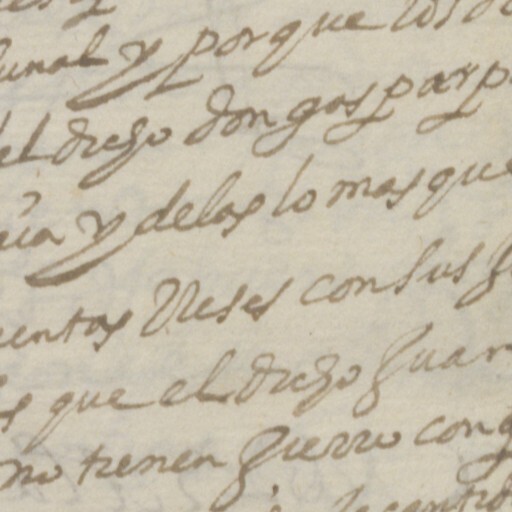 unal y porque los
el dicho don gaspar p
cia y de las lo mas que
entas Reses con sus
s que el dicho Juan
no tienen hierro con q